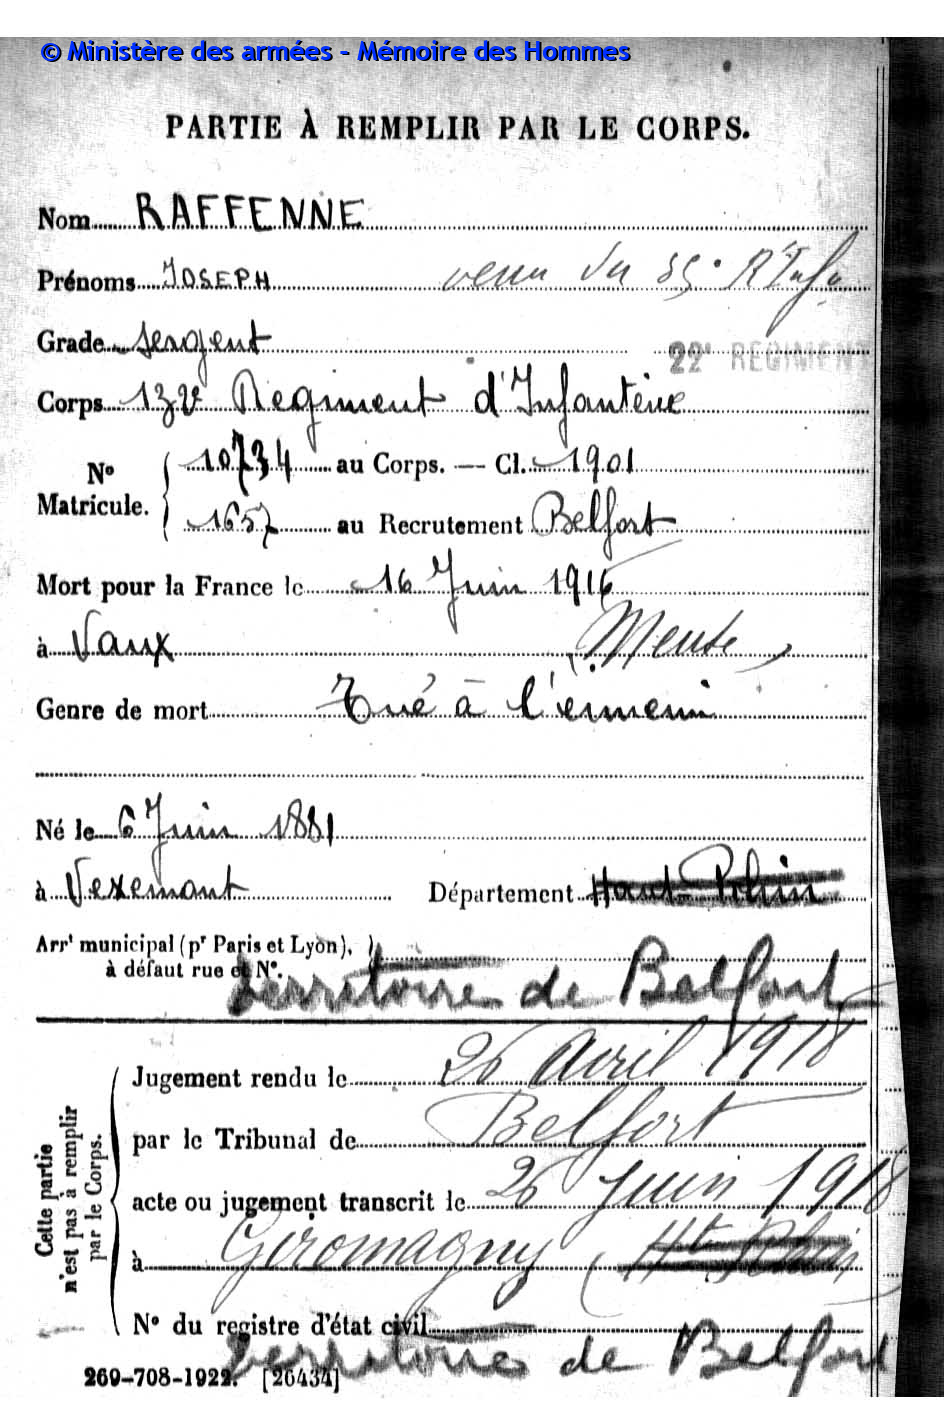 © Ministère des armées - Mémoire des Hommes
PARTIE À REMPLIR PAR LE CORPS.
Nom RAFFENNE
Prénoms JOSEPH venu du 35e R'Inf
Grade Sergent
22e REGIMENT
Corps 132 Régiment d'Infanterie
No Matricule. 10734 au Corps. — Cl. 1901
1657 au Recrutement Belfort
Mort pour la France le 16 Juin 1916
à Vaux (Meuse)
Genre de mort Tué à l'ennemi
Né le 6 Juin 1881
à Vexemont Département Haut-Rhin
Arrt municipal (pr Paris et Lyon),
à défaut rue et No.
Territoire de Belfort
Cette partie n'est pas à remplir par le Corps.
Jugement rendu le 26 Avril 1918
par le Tribunal de Belfort
acte ou jugement transcrit le 26 Juin 1918
à Giromagny (Ht Rhin)
No du registre d'état civil
Territoire de Belfort
269-708-1922. [26434]